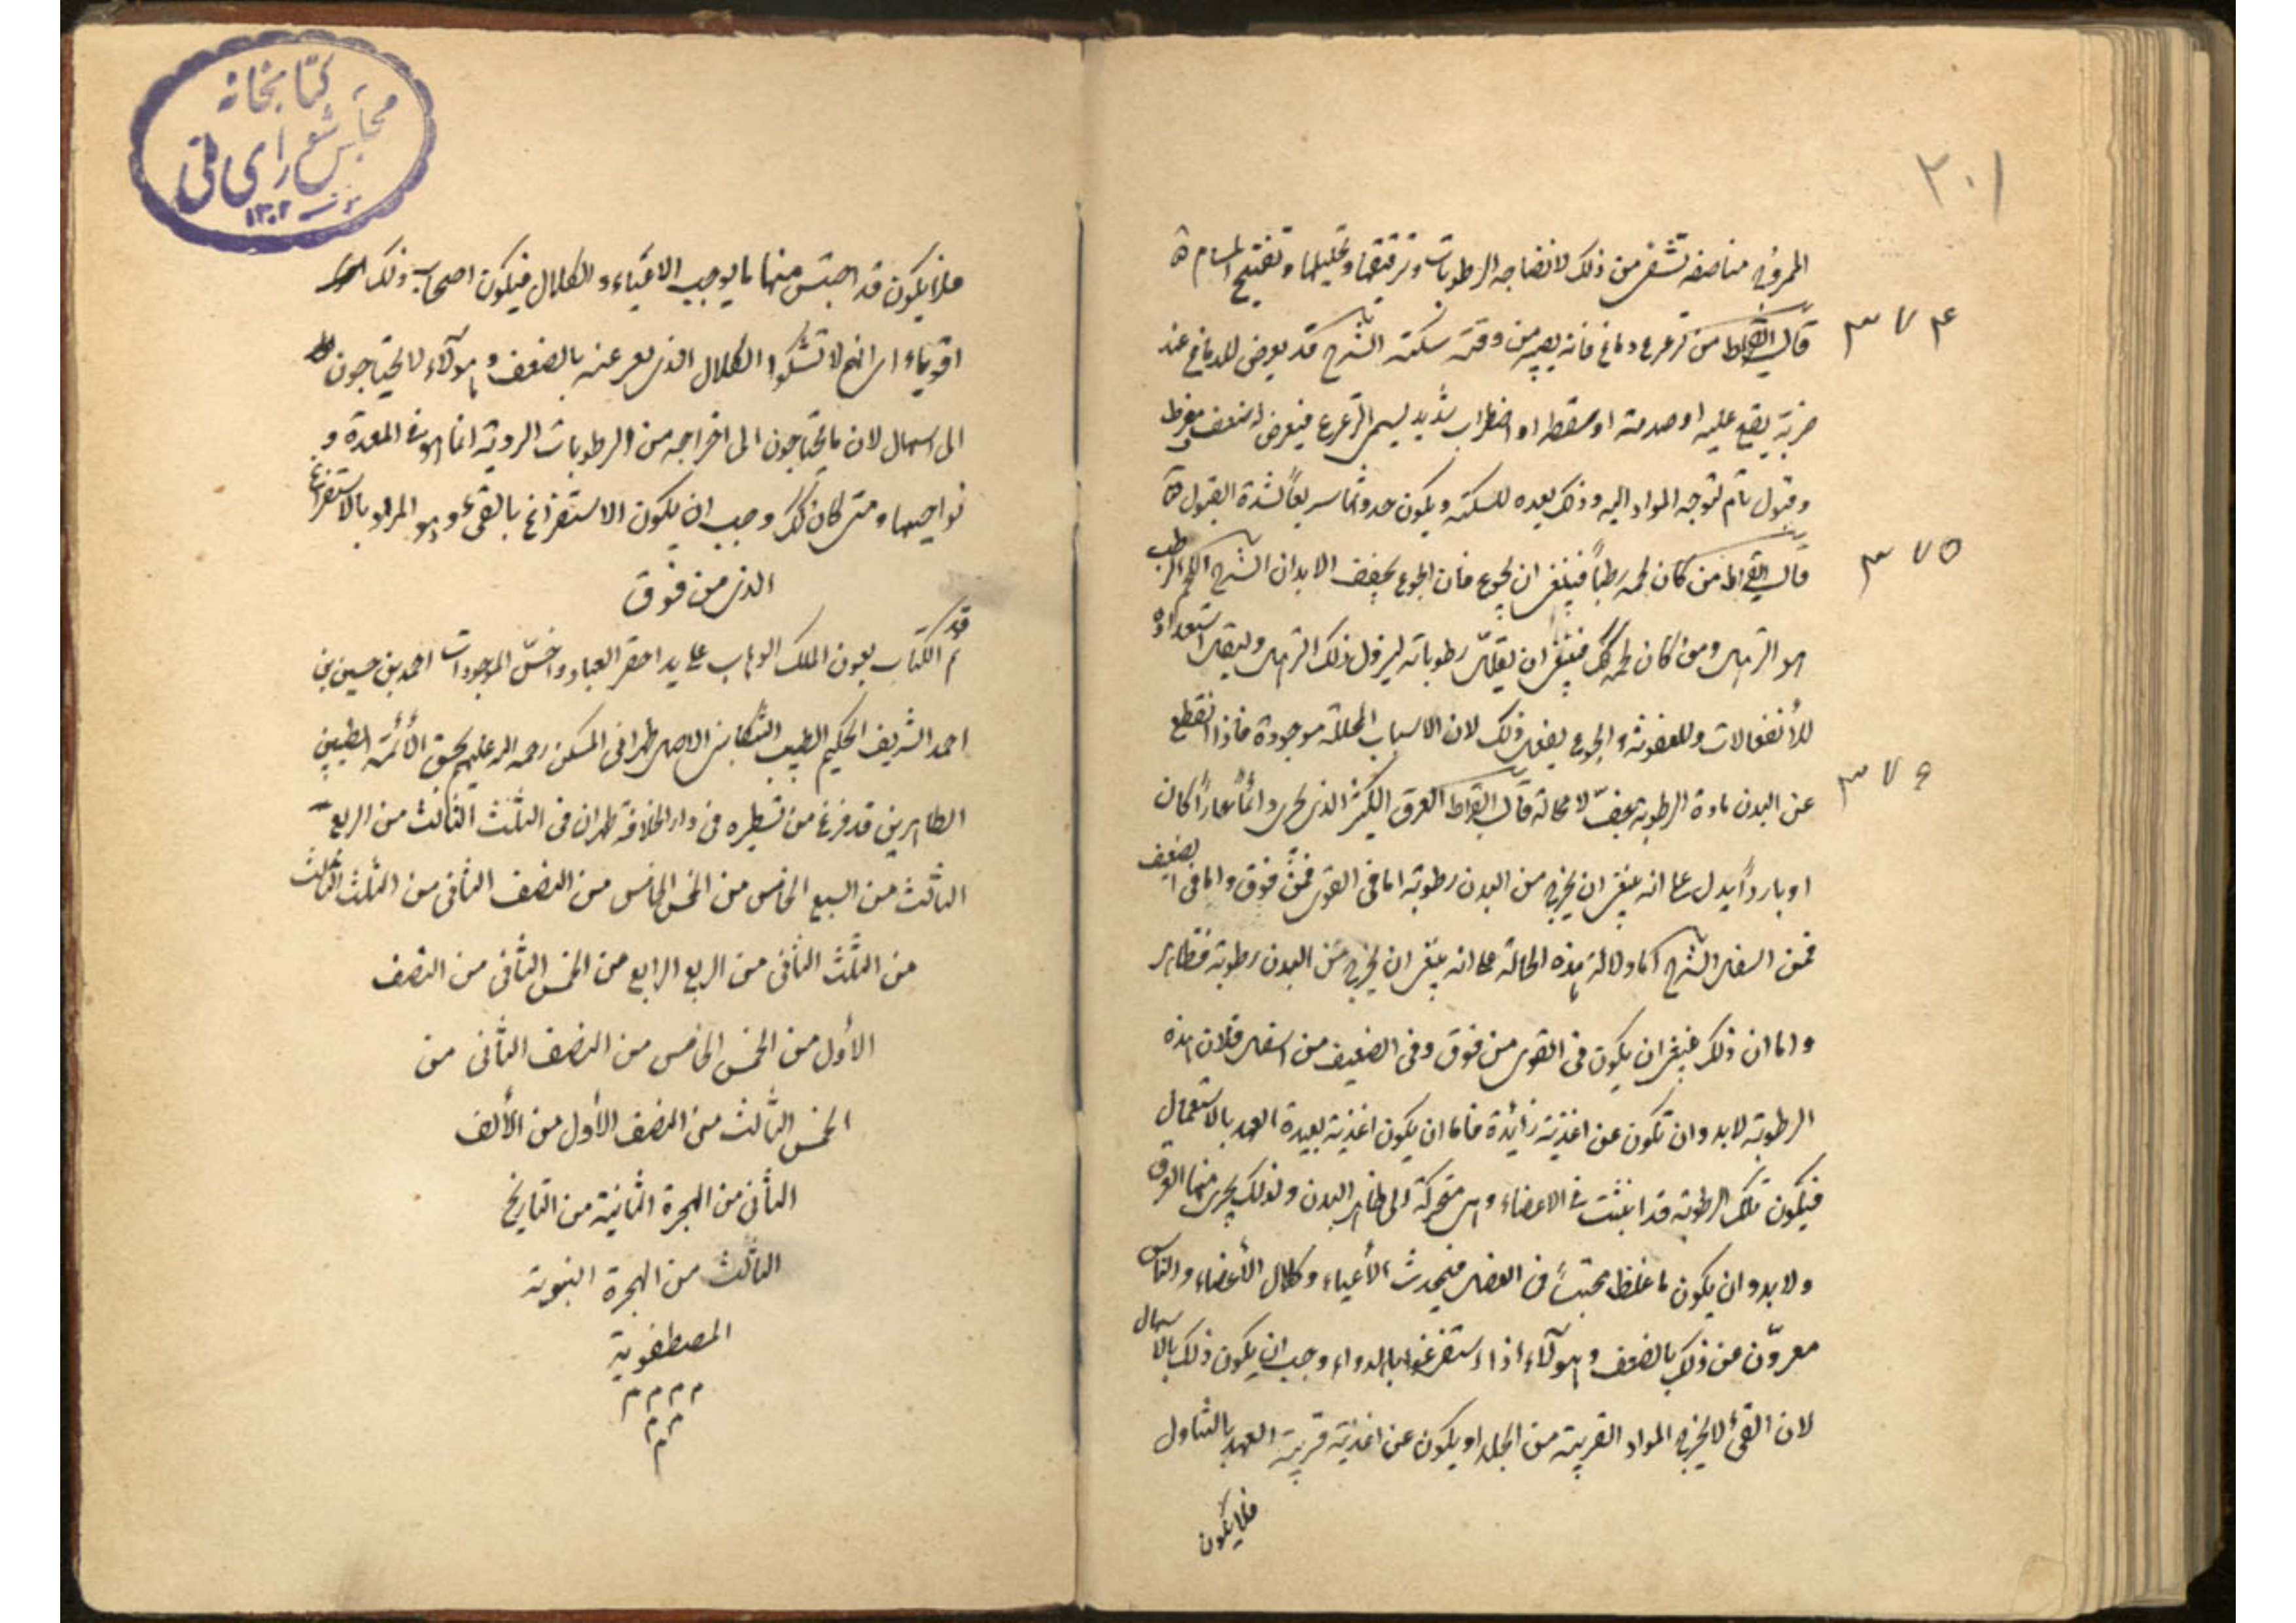 ٣٠١
المروخ مناصفه تشفى من ذلك لانضاجه الرطوبات وترقيقها وتحليلها وتفتيح المسام
٣٧٤
قال ابقراط من تزعزع دماغه فانه يصيبه من وقته سكتة الشرح قد يعرض للدماغ عند
ضربة يقع عليه او صدمة او سقطه او اضطراب شديد ليسمى التزعزع فيعرض له ضعف مفرط
وقبول تام لتوجه المواد اليه وذلك يعده للسكتة ويكون حدوثها سريعاً لشدة القبول
٣٧٥
قال ابقراط من كان لحمه رطباً فينبغى ان يجوع فان الجوع يجفف الابدان الشرح اللحم الرطب
هو الترهل ومن كان لحمه كك فينبغى ان يقلل رطوباته ليزول ذلك الترهل وليقل استعداده
للأنفعالات وللعفونة والجوع يفعل ذلك لان الاسباب المحللة موجودة فاذا انقطع
٣٧٦
عن البدن مادة الرطوبة يجف لا محالة قال ابقراط العرق الكثير الذى يجرى دائماً حاراً كان
او بارداً يدل على انه ينبغى ان يخرج من البدن رطوبة اما فى القوى فمن فوق واما فى الضعيف
فمن اسفل الشرح اما دلالة هذه الحالة على انه ينبغى ان يخرج من البدن رطوبة فظاهر
واما ان ذلك ينبغى ان يكون فى القوى من فوق وفى الضعيف من اسفل فلان هذه
الرطوبة لا بد وان تكون عن اغذية زائدة فاما ان يكون اغذية بعيدة العهد بالاستعمال
فيكون تلك الرطوبة قد انبثت فى الاعضاء وهى متحركة الى ظاهر البدن ولذلك يجرى منها العرق
ولا بد وان يكون ما غلظ محتبساً فى العضل فيحدث الأعياء وكلال الأعضاء والناس
معبرون عن ذلك بالضعف وهولآء اذا استفرغوا بالدواء وجب ان يكون ذلك بالاسهال
لان القئ لا يخرج المواد القريبة من الجلد او يكون عن اغذية قريبة العهد بالتناول
فلا يكون
كتابخانه
مجلس شوراى ملى
١٣٠٢
فلا يكون قد احتبس منها ما يوجب الاعياء والكلال فيكون اصحاب ذلك
اقوياء اى انهم لا تشكوا الكلال الذى يعبر عنه بالضعف وهولآء لا يحتاجون
الى اسهال لان ما يحتاجون الى اخراجه من الرطوبات الردية انما هو فى المعدة و
نواحيها ومتى كان كك وجب ان يكون الاستفراغ بالقئ وهو المراد بالاستفراغ
الذى من فوق
قد تم الكتاب بعون الملك الوهاب على يد احقر العباد واخسّ الموجودات احمد بن حسين بن
احمد الشريف الحكيم الطبيب التنكابنى الاصل طهرانى المسكن رحمه الله عليهم بحق الأئمة الطيبين
الطاهرين قد فرغ من تسطيره فى دار الخلافة طهران فى الثلث الثالث من الربع
الثالث من السبع الخامس من الخمس الخامس من النصف الثانى من الثلث الثالث
من الثلث الثانى من الربع الرابع من الخمس الثانى من النصف
الأول من الخمس الخامس من النصف الثانى من
الخمس الثالث من النصف الأول من الألف
الثانى من الهجرة الثانية من التاريخ
الثالث من الهجرة النبوية
المصطفوية
م م م م
م م
م